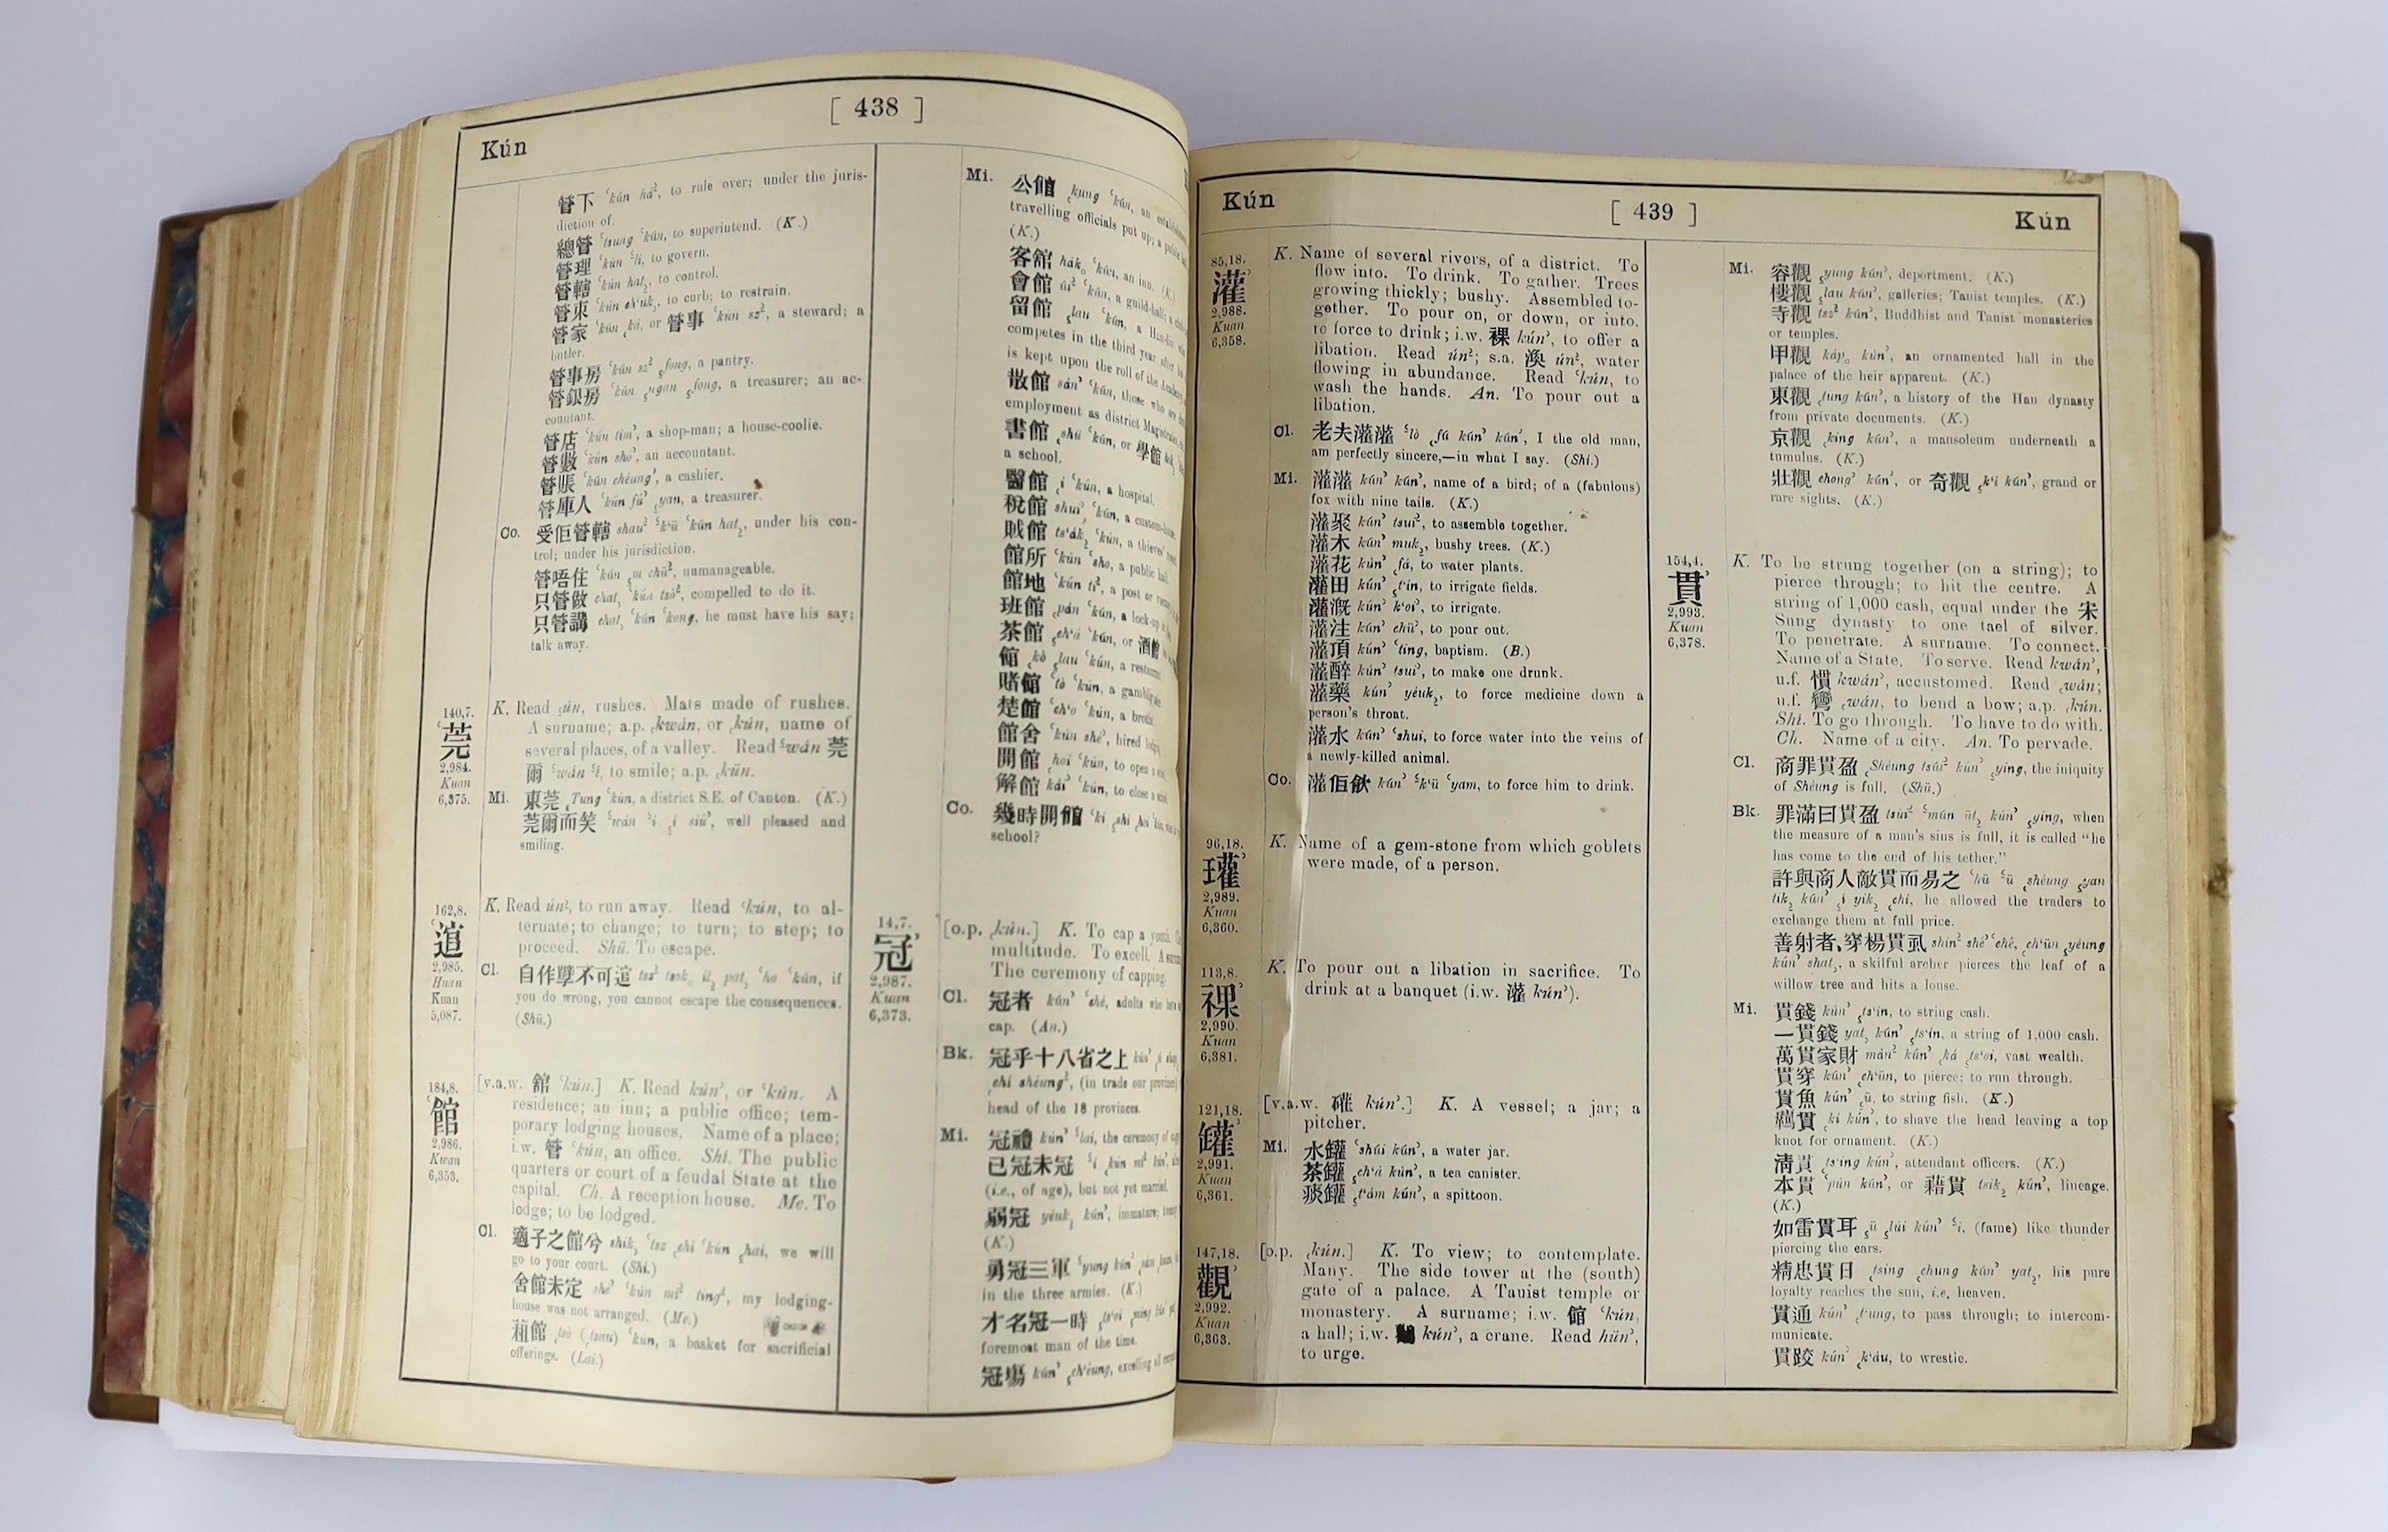 [ 438 ]
Kún
管下 ʿkún há², to rule over; under the juris-
diction of.
總管 ʿtsung ʿkún, to superintend. (K.)
管理 ʿkún ʿli, to govern.
管轄 ʿkún hat, to control.
管束 ʿkún chʿuk, to curb; to restrain.
管家 ʿkún ká, or 管事 ʿkún sz², a steward; a
butler.
管事房 ʿkún sz² fong, a pantry.
管銀房 ʿkún ngan fong, a treasurer; an ac-
countant.
管店 ʿkún tímʾ, a shop-man; a house-coolie.
管數 ʿkún shòʾ, an accountant.
管賬 ʿkún chéungʾ, a cashier.
管庫人 ʿkún fúʾ yan, a treasurer.
Co. 受佢管轄 shau² ʿkʿü ʿkún hat, under his con-
trol; under his jurisdiction.
管唔住 ʿkún m chü², unmanageable.
只管做 chat ʿkún tsò², compelled to do it.
只管講 chat ʿkún ʿkong, he must have his say;
talk away.
140,7.
莞
2,984.
Kuan
6,375.
K. Read ún, rushes. Mats made of rushes.
A surname; a.p. kwán, or kún, name of
several places, of a valley. Read ʿwán 莞
爾 ʿwán ʿi, to smile; a.p. kún.
Mi. 東莞 Tung ʿkún, a district S.E. of Canton. (K.)
莞爾而笑 ʿwán ʿi i siúʾ, well pleased and
smiling.
162,8.
逭
2,985.
Huan
Kuan
5,087.
K. Read ún², to run away. Read ʿkún, to al-
ternate; to change; to turn; to step; to
proceed. Shü. To escape.
Cl. 自作孽不可逭 tsz² tsok it pat ʿho ʿkún, if
you do wrong, you cannot escape the consequences.
(Shü.)
184,8.
館
2,986.
Kwan
6,353.
[v.a.w. 舘 ʿkún.] K. Read kúnʾ, or ʿkún. A
residence; an inn; a public office; tem-
porary lodging houses. Name of a place;
i.w. 管 ʿkún, an office. Shi. The public
quarters or court of a feudal State at the
capital. Ch. A reception house. Me. To
lodge; to be lodged.
Cl. 適子之館兮 shik ʿtsz chi ʿkún hai, we will
go to your court. (Shi.)
舍館未定 shéʾ ʿkún mi² ting², my lodging-
house was not arranged. (Me.)
蒩館 tsò (tsau) ʿkún, a basket for sacrificial
offerings. (Lai.)
Mi. 公館 kung ʿkún, an
travelling officials put up; a public
(K.)
客館 hák ʿkún, an inn. (K.)
會館 úi² ʿkún, a guild-hall; a
留館 lau ʿkún, a
competes in the third year after
is kept upon the roll of the
散館 sánʾ ʿkún, those who
employment as district Magistrates,
書館 shü ʿkún, or 學館
a school.
醫館 i ʿkún, a hospital.
稅館 shuiʾ ʿkún, a custom-house.
賊館 tsʿák ʿkún, a thieves'
館所 ʿkún ʿsho, a public hall.
館地 ʿkún tí², a post or
班館 pán ʿkún, a lock-up
茶館 chʿá ʿkún, or 酒館
館 kò lau ʿkún, a restaurant
賭館 ʿtò ʿkún, a gambling
楚館 ʿchʿo ʿkún, a brothel
館舍 ʿkún shéʾ, hired
開館 hoi ʿkún, to open a
解館 káiʾ ʿkún, to close a
Co. 幾時開館 ʿki shi hoi ʿkún,
school?
14,7.
冠
2,987.
Kuan
6,373.
[o.p. kún.] K. To cap a youth.
multitude. To excell. A
The ceremony of capping.
Cl. 冠者 kúnʾ ʿché, adults who
cap. (An.)
Bk. 冠乎十八省之上 kúnʾ
chi shéung², (in trade our province)
head of the 18 provinces.
Mi. 冠禮 kúnʾ ʿlai, the ceremony of
已冠未冠 ʿi kún mi²
(i.e., of age), but not yet married.
弱冠 yéuk kúnʾ, immature;
(K.)
勇冠三軍 ʿyung kúnʾ sám
in the three armies. (K.)
才名冠一時 tsʿoi ming kúnʾ
foremost man of the time.
冠塲 kúnʾ chʿéung, excelling all
Kún
[ 439 ]
Kún
85,18.
灌
2,988.
Kuan
6,358.
K. Name of several rivers, of a district. To
flow into. To drink. To gather. Trees
growing thickly; bushy. Assembled to-
gether. To pour on, or down, or into.
to force to drink; i.w. 祼 kúnʾ, to offer a
libation. Read ún²; s.a. 渙 ún², water
flowing in abundance. Read ʿkún, to
wash the hands. An. To pour out a
libation.
Cl. 老夫灌灌 ʿlò fú kúnʾ kúnʾ, I the old man,
am perfectly sincere,—in what I say. (Shi.)
Mi. 灌灌 kúnʾ kúnʾ, name of a bird; of a (fabulous)
fox with nine tails. (K.)
灌聚 kúnʾ tsui², to assemble together.
灌木 kúnʾ muk, bushy trees. (K.)
灌花 kúnʾ fá, to water plants.
灌田 kúnʾ tʿín, to irrigate fields.
灌漑 kúnʾ kʿoiʾ, to irrigate.
灌注 kúnʾ chüʾ, to pour out.
灌頂 kúnʾ ʿting, baptism. (B.)
灌醉 kúnʾ tsuiʾ, to make one drunk.
灌藥 kúnʾ yéuk, to force medicine down a
person's throat.
灌水 kúnʾ ʿshui, to force water into the veins of
a newly-killed animal.
Co. 灌佢飲 kúnʾ ʿkʿü ʿyam, to force him to drink.
96,18.
瓘
2,989.
Kuan
6,360.
K. Name of a gem-stone from which goblets
were made, of a person.
113,8.
祼
2,990.
Kuan
6,381.
K. To pour out a libation in sacrifice. To
drink at a banquet (i.w. 灌 kúnʾ).
121,18.
罐
2,991.
Kuan
6,361.
[v.a.w. 礶 kúnʾ.] K. A vessel; a jar; a
pitcher.
Mi. 水罐 ʿshúi kúnʾ, a water jar.
茶罐 chʿá kúnʾ, a tea canister.
痰罐 tʿám kúnʾ, a spittoon.
147,18.
觀
2,992.
Kuan
6,363.
[o.p. kún.] K. To view; to contemplate.
Many. The side tower at the (south)
gate of a palace. A Tauist temple or
monastery. A surname; i.w. 館 ʿkún,
a hall; i.w. kúnʾ, a crane. Read hünʾ,
to urge.
Mi. 容觀 yung kúnʾ, deportment. (K.)
樓觀 lau kúnʾ, galleries; Tauist temples. (K.)
寺觀 tsz² kúnʾ, Buddhist and Tauist monasteries
or temples.
甲觀 káp kúnʾ, an ornamented hall in the
palace of the heir apparent. (K.)
東觀 tung kúnʾ, a history of the Han dynasty
from private documents. (K.)
京觀 king kúnʾ, a mausoleum underneath a
tumulus. (K.)
壯觀 chongʾ kúnʾ, or 奇觀 kʿi kúnʾ, grand or
rare sights. (K.)
154,4.
貫
2,993.
Kuan
6,378.
K. To be strung together (on a string); to
pierce through; to hit the centre. A
string of 1,000 cash, equal under the 宋
Sung dynasty to one tael of silver.
To penetrate. A surname. To connect.
Name of a State. To serve. Read kwánʾ,
u.f. 慣 kwánʾ, accustomed. Read wán;
u.f. 彎 wán, to bend a bow; a.p. kún.
Shi. To go through. To have to do with.
Ch. Name of a city. An. To pervade.
Cl. 商罪貫盈 Shéung tsúi² kúnʾ ying, the iniquity
of Shéung is full. (Shü.)
Bk. 罪滿曰貫盈 tsúi² ʿmún üt kúnʾ ying, when
the measure of a man's sins is full, it is called "he
has come to the end of his tether."
許與商人敵貫而易之 ʿhü ʿü shéung yan
tik kúnʾ i yik chi, he allowed the traders to
exchange them at full price.
善射者,穿楊貫虱 shín² shéʾ ʿché, chʿün yéung
kúnʾ shat, a skilful archer pierces the leaf of a
willow tree and hits a louse.
Mi. 貫錢 kúnʾ tsʿín, to string cash.
一貫錢 yat kúnʾ tsʿín, a string of 1,000 cash.
萬貫家財 mán² kúnʾ ká tsʿoi, vast wealth.
貫穿 kúnʾ chʿün, to pierce; to run through.
貫魚 kúnʾ ü, to string fish. (K.)
羈貫 ki kúnʾ, to shave the head leaving a top
knot for ornament. (K.)
淸貫 tsʿing kúnʾ, attendant officers. (K.)
本貫 ʿpún kúnʾ, or 藉貫 tsik kúnʾ, lineage.
(K.)
如雷貫耳 ü lúi kúnʾ ʿi, (fame) like thunder
piercing the ears.
精忠貫日 tsing chung kúnʾ yat, his pure
loyalty reaches the sun, i.e. heaven.
貫通 kúnʾ tʿung, to pass through; to intercom-
municate.
貫跤 kúnʾ kʿáu, to wrestle.